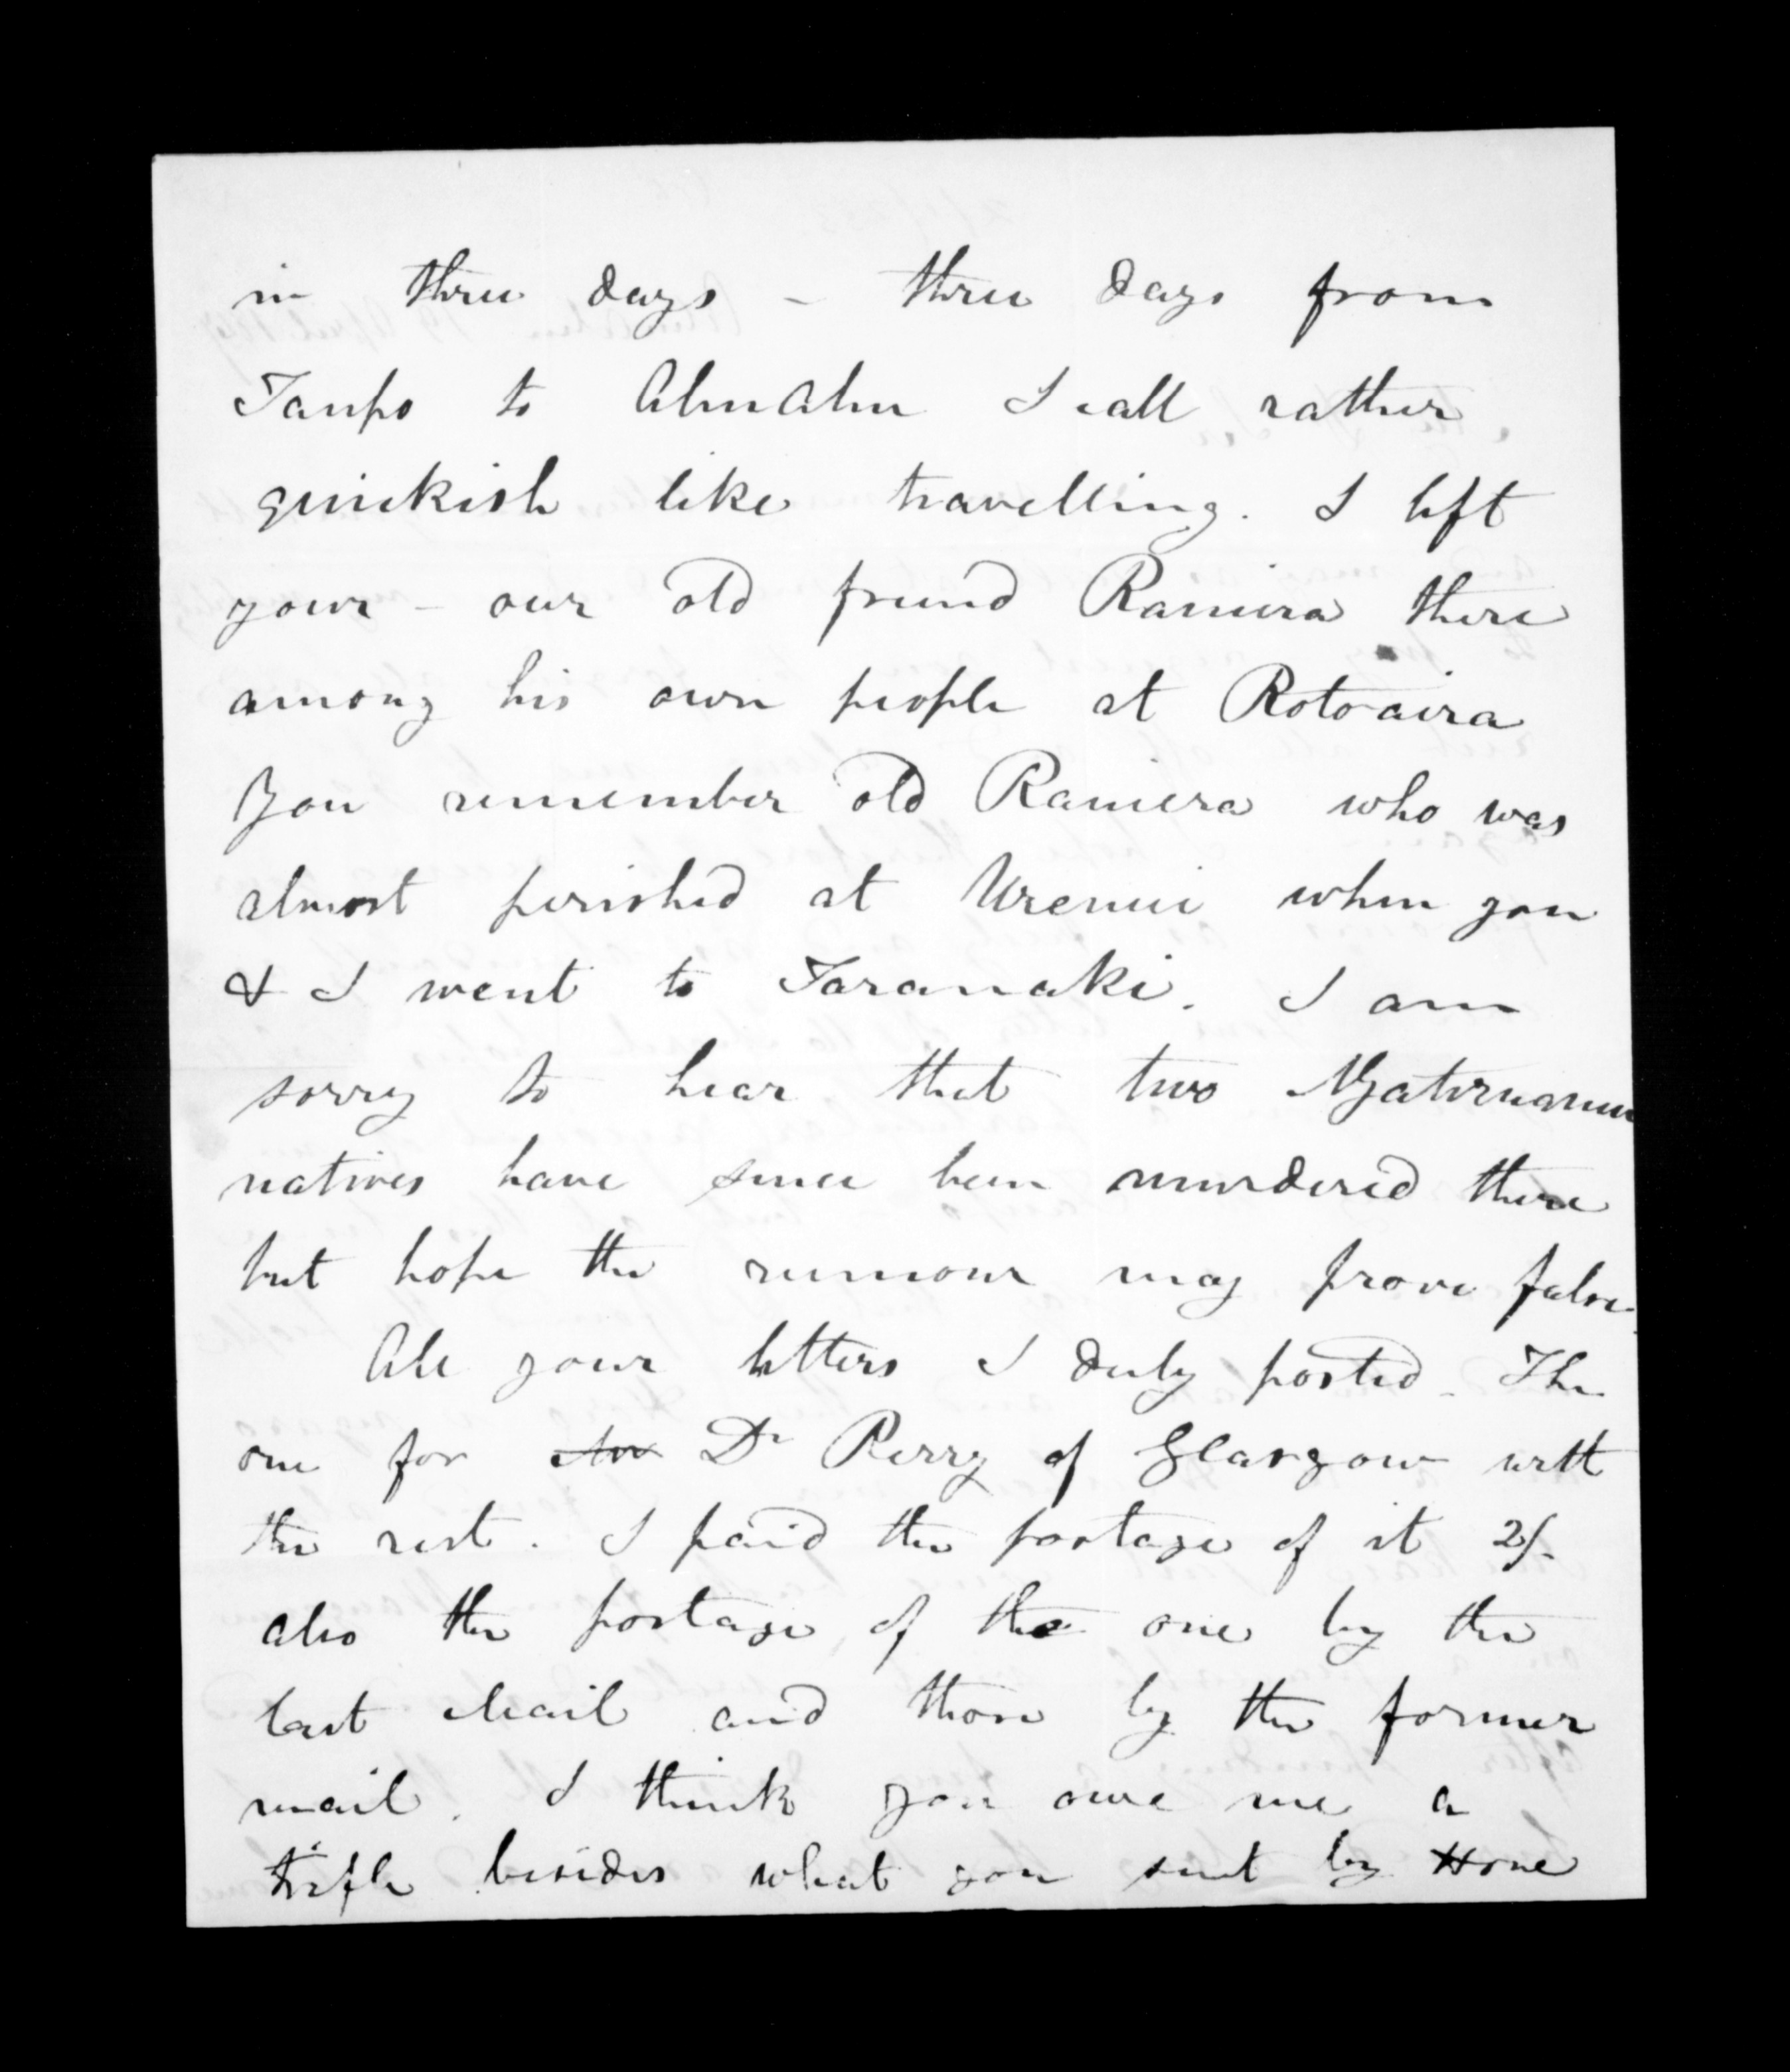 in three days - three days from
Taupo to AhuAhu I call rather
quickish like travelling. I left
your - our old friend Raniera there
among his own people at Rotoaira
You remember old Raniera who was
almost perished at Urenui when you
& I went to Taranaki. I am
sorry to hear that two Ngatiruanui
natives have since been murdered there
but hope the rumour may prove false.
All your letters I duly posted. The
one for Dr Perry of Glasgow with
the rest. I paid the postage of it 2/-
also the postage of the one by the
last Mail and those by the former
mail. I think you owe me a
trifle besides what you sent by Hone